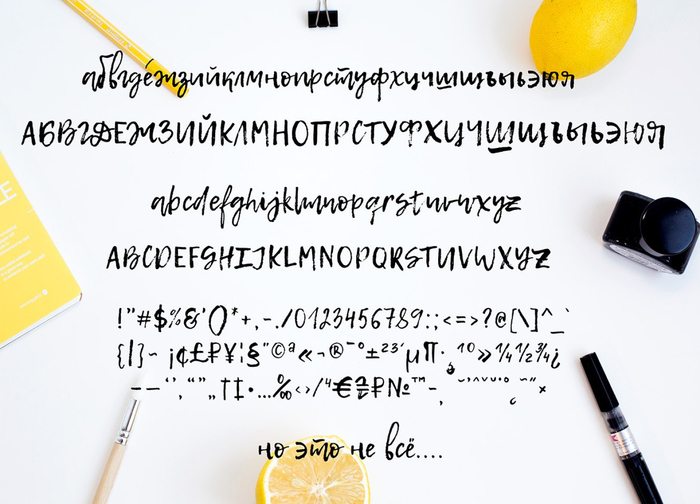 абвгдежзийклмнопрстуфхцчшщъыьэюя
АБВГДЕЖЗИЙКЛМНОПРСТУФХЦЧШЩЪЫЬЭЮЯ
abcdefghijklmnopqrstuvwxyz
ABCDEFGHIJKLMNOPQRSTUVWXYZ
!"#$%&'()*+,-./0123456789:;<=>?@[\]^_`
{|}~ ¡¢£₽¥¦§¨©ª«¬®¯°±²³´µ¶·¸¹º»¼½¾¿
–—‘’‚“”„†‡•…‰‹›⁄€₽№™−
но это не всё....